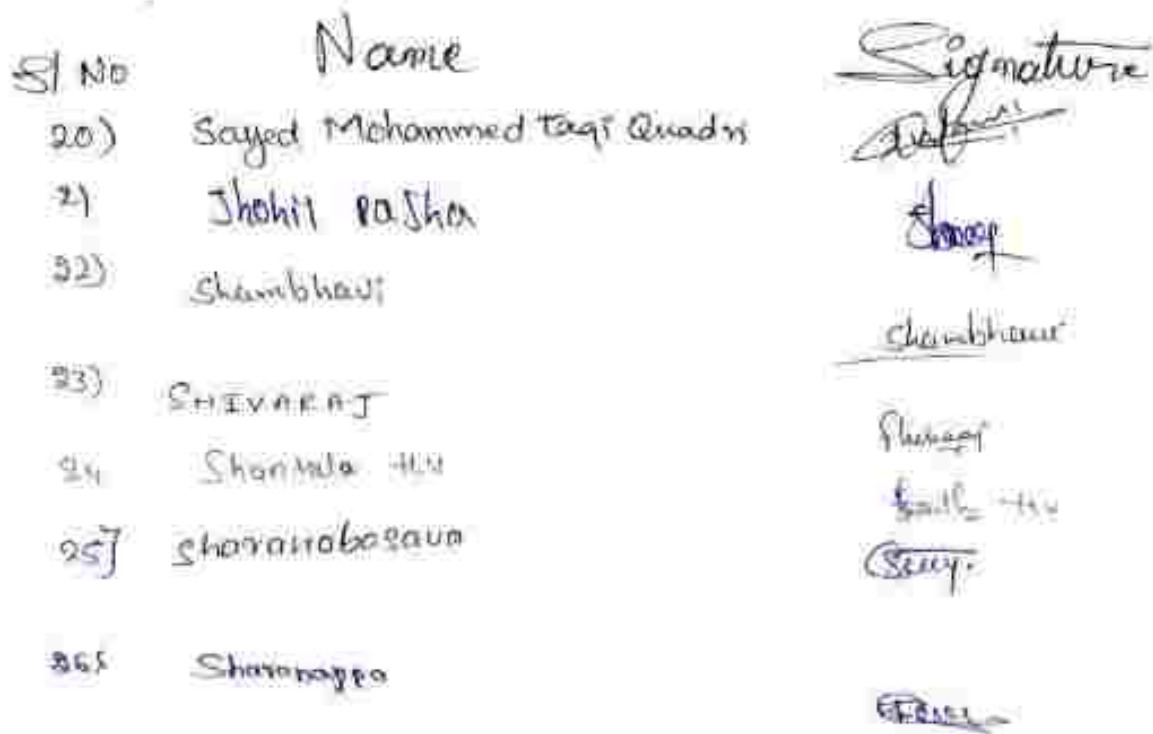 Sl No Name Signature
20) Sayed Mohammed Taqi Quadri
21 Jhohil Pasha
22) Shambhavi Shambhavi
23) SHIVARAJ
24 Shantala H.V
25) Sharanabasava
26) Sharanappa